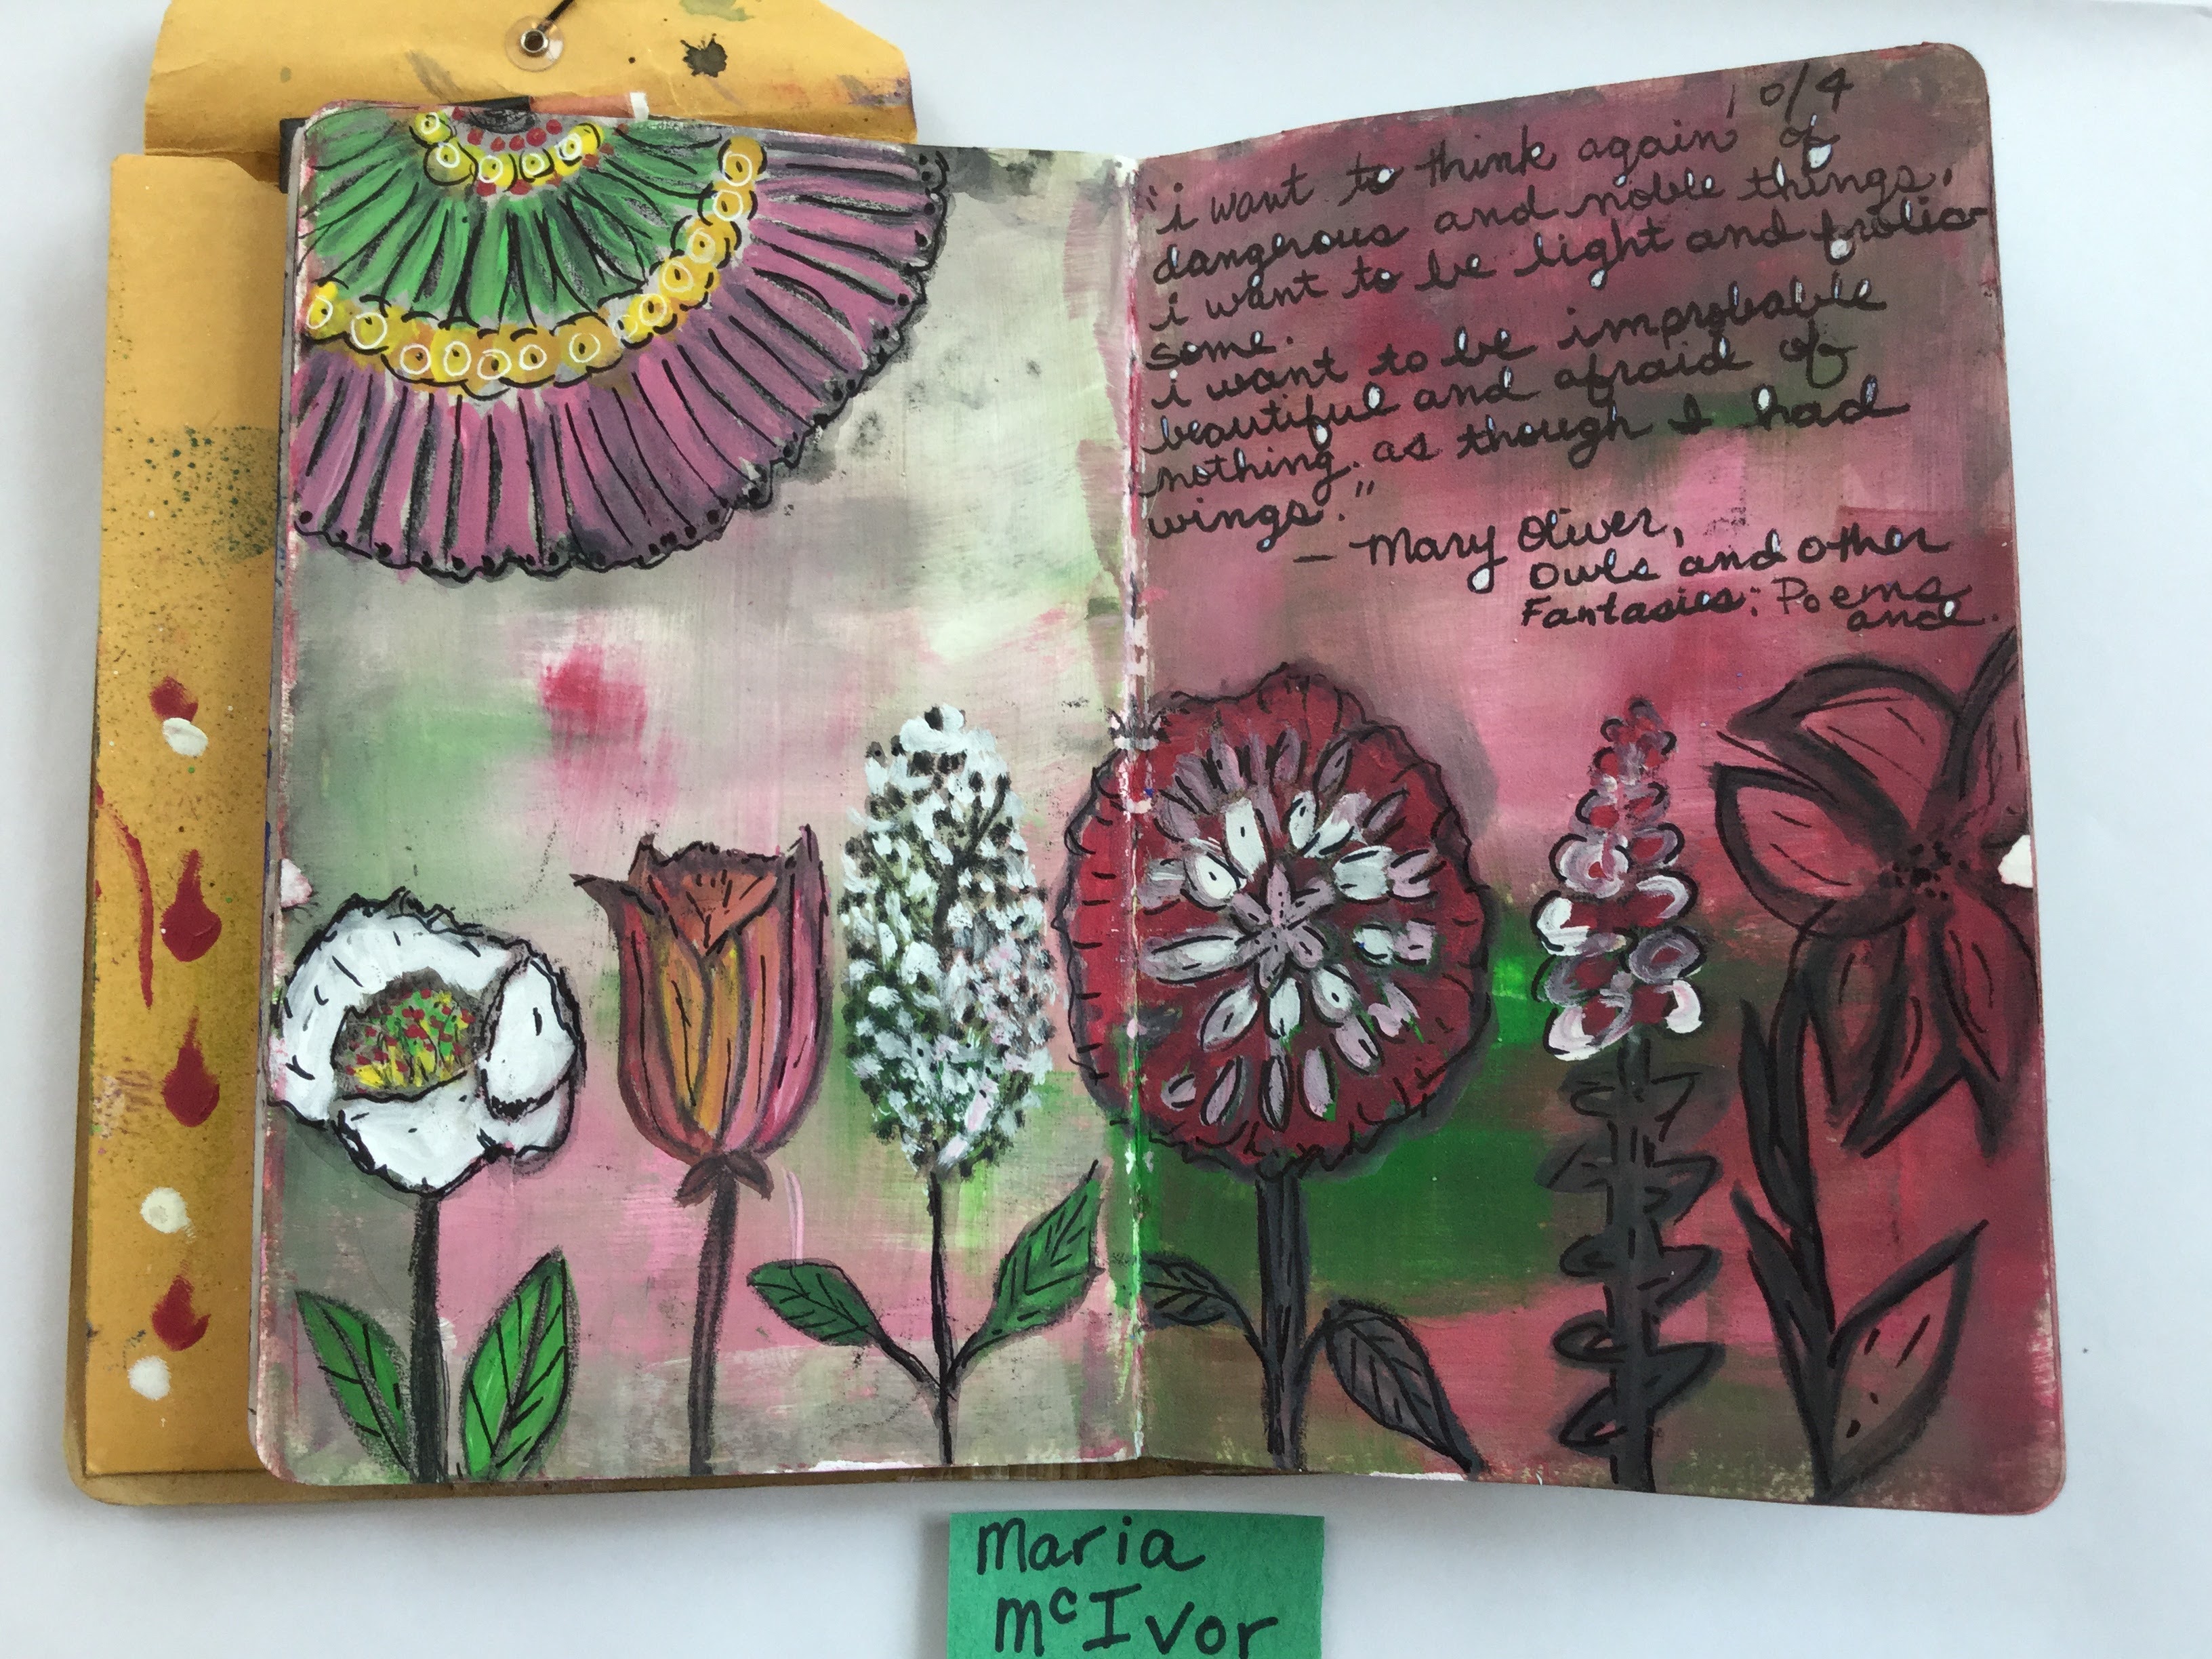 10/4
"i want to think again of
dangerous and noble things.
i want to be light and frolic
some.
i want to be improbable
beautiful and afraid of
nothing. as though I had
wings."
— Mary Oliver,
Owls and other
Fantasies: Poems
and.
Maria
McIvor